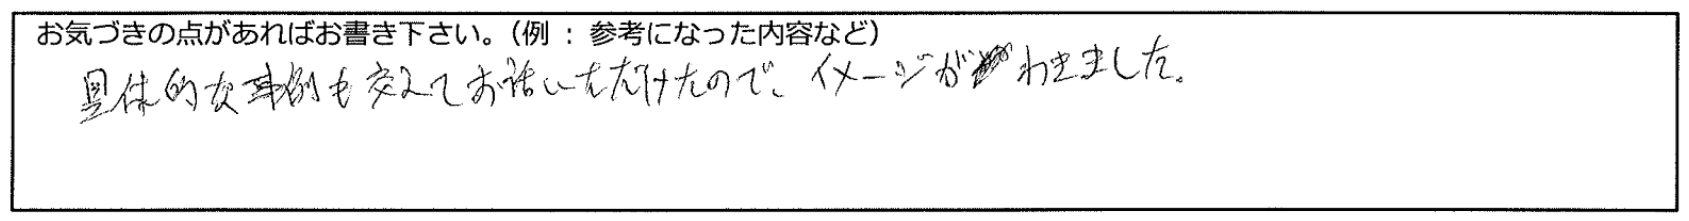 お気づきの点があればお書き下さい。（例 : 参考になった内容など）
具体的な事例も交えてお話いただけたので、イメージがわきました。